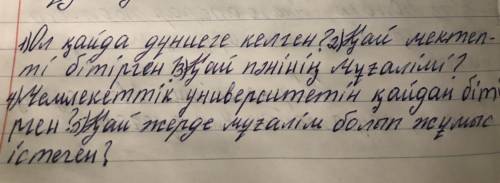 1) Ол қайда дүниеге келген? 2) Қай мектеп-
ті бітірген 3) Қай пәнінің мұғалімі?
4) Мемлекеттік университетін қайдан біті
рген? 5) Қай жерде мұғалім болып жұмыс
істеген?